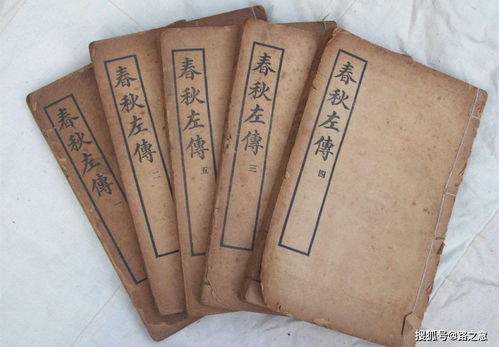 春秋左傳 一
春秋左傳 二
春秋左傳 五
春秋左傳 三
春秋左傳 四
搜狐号@路之意